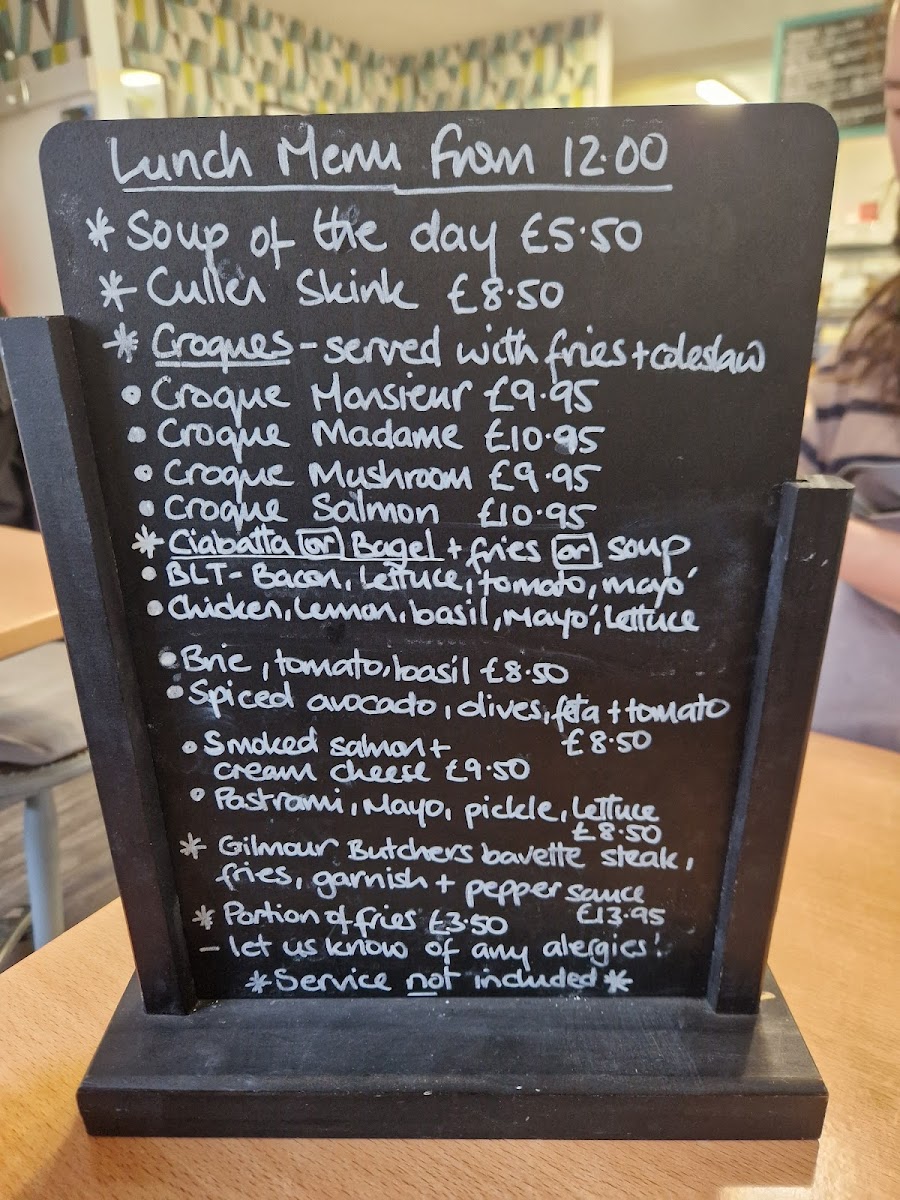 Lunch Menu from 12.00
* Soup of the day £5.50
* Cullen Skink £8.50
* Croques - served with fries + coleslaw
• Croque Monsieur £9.95
• Croque Madame £10.95
• Croque Mushroom £9.95
• Croque Salmon £10.95
* Ciabatta or Bagel + fries or soup
• BLT - Bacon, lettuce, tomato, mayo'
• Chicken, lemon, basil, Mayo', lettuce
• Brie, tomato, basil £8.50
• Spiced avocado, olives, feta + tomato
£8.50
• Smoked salmon +
cream cheese £9.50
• Pastrami, Mayo, pickle, lettuce
£8.50
* Gilmour Butchers bavette steak,
fries, garnish + pepper sauce
£13.95
* Portion of fries £3.50
- let us know of any alergies!
* Service not included *